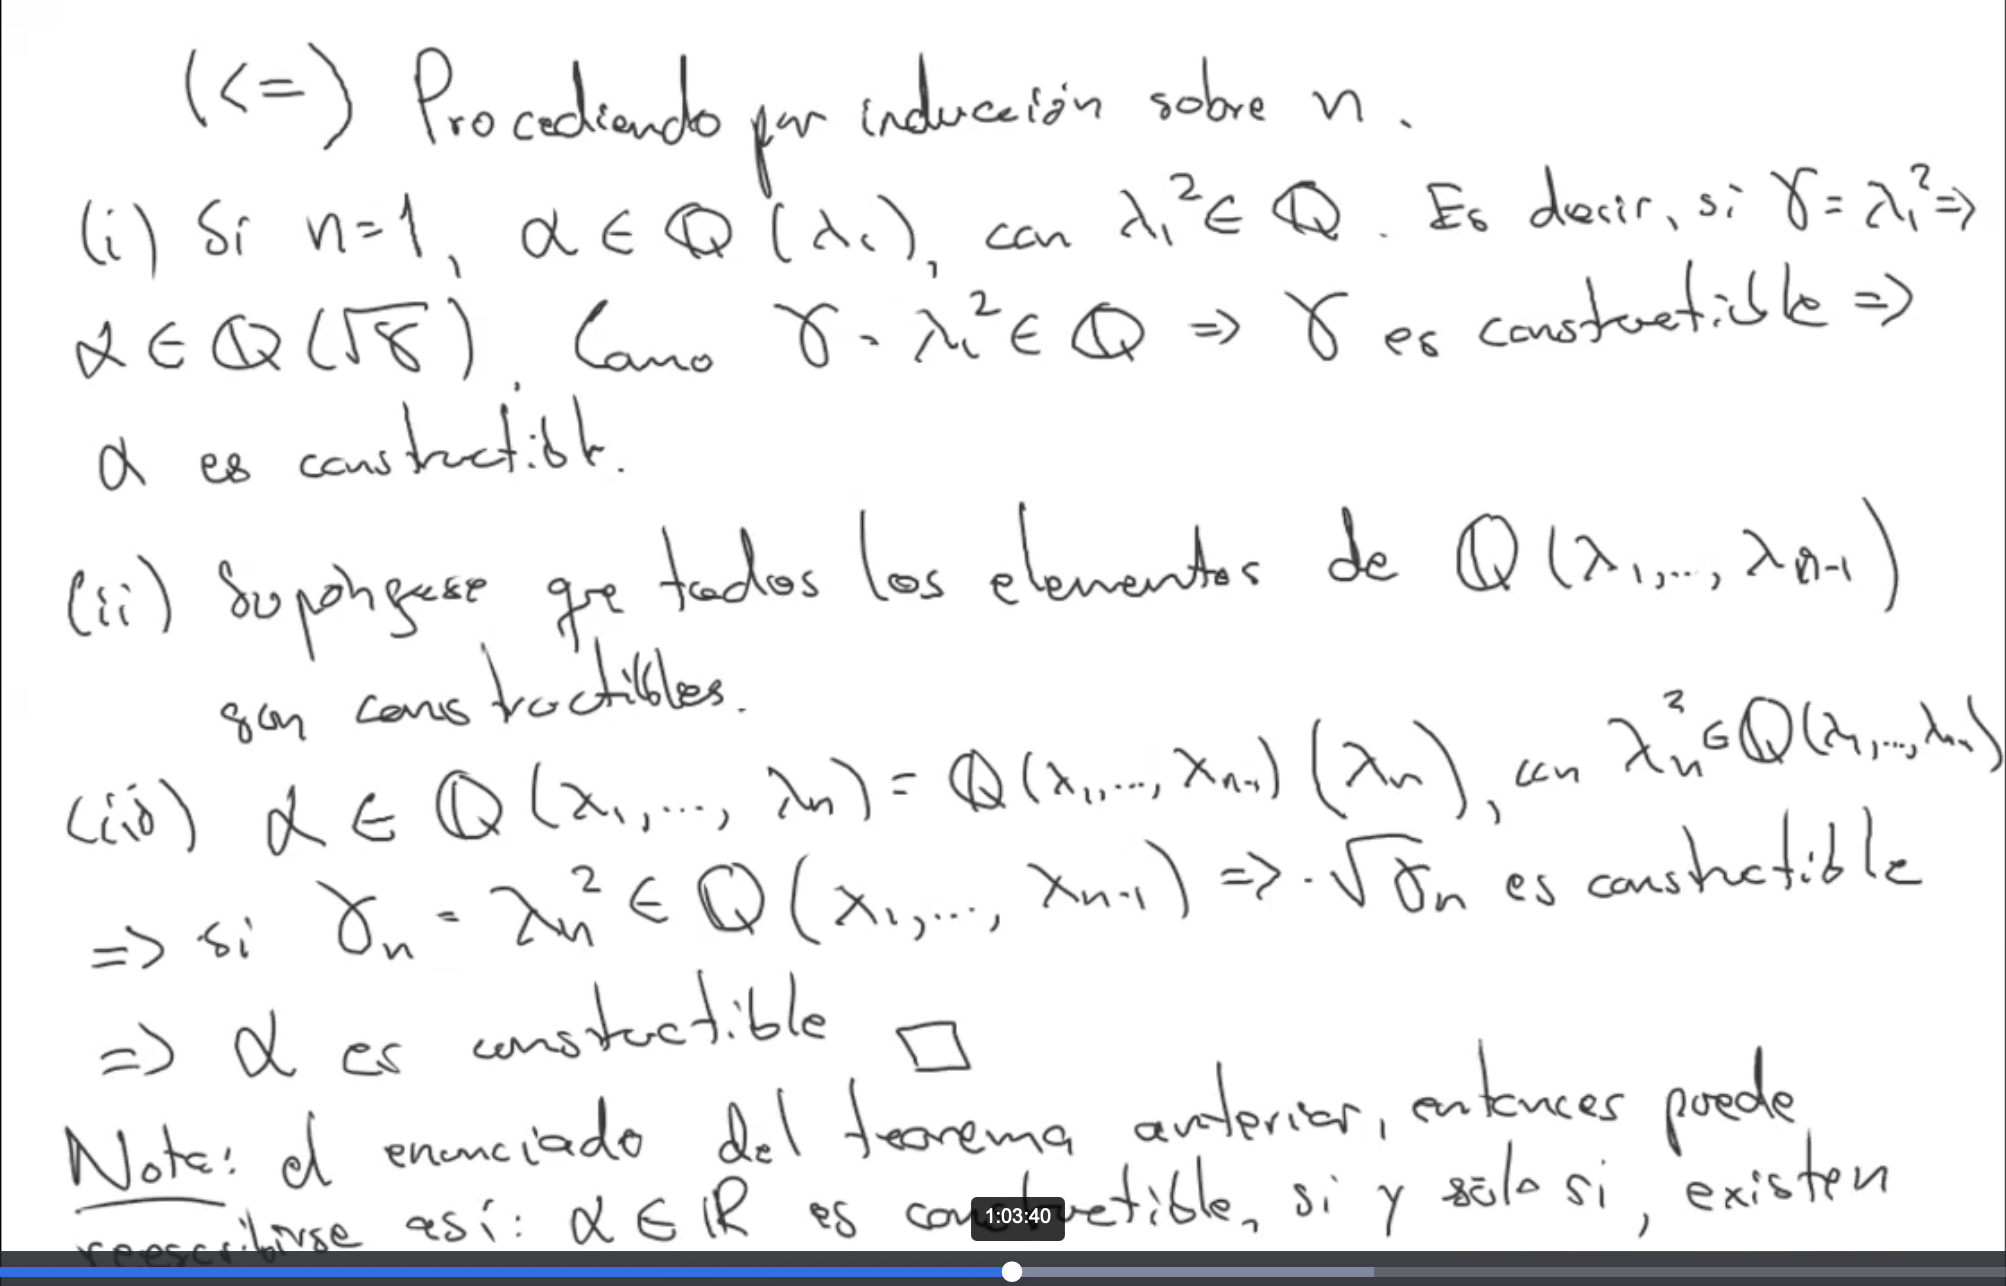 (<=) Procediendo por inducción sobre n.
(i) Si n=1, α ∈ ℚ(λ₁), con λ₁² ∈ ℚ. Es decir, si γ = λ₁² =>
α ∈ ℚ(√γ). Como γ = λ₁² ∈ ℚ => γ es constructible =>
α es constructible.
(ii) Supóngase que todos los elementos de ℚ(λ₁,..., λₙ₋₁)
son constructibles.
(iii) α ∈ ℚ(λ₁,..., λₙ) = ℚ(λ₁,..., λₙ₋₁)(λₙ), con λₙ² ∈ ℚ(λ₁,..., λₙ₋₁)
=> si γₙ = λₙ² ∈ ℚ(λ₁,..., λₙ₋₁) => √γₙ es constructible
=> α es constructible □
Nota: el enunciado del teorema anterior, entonces puede
reescribirse así: α ∈ ℝ es constructible, si y sólo si, existen
1:03:40